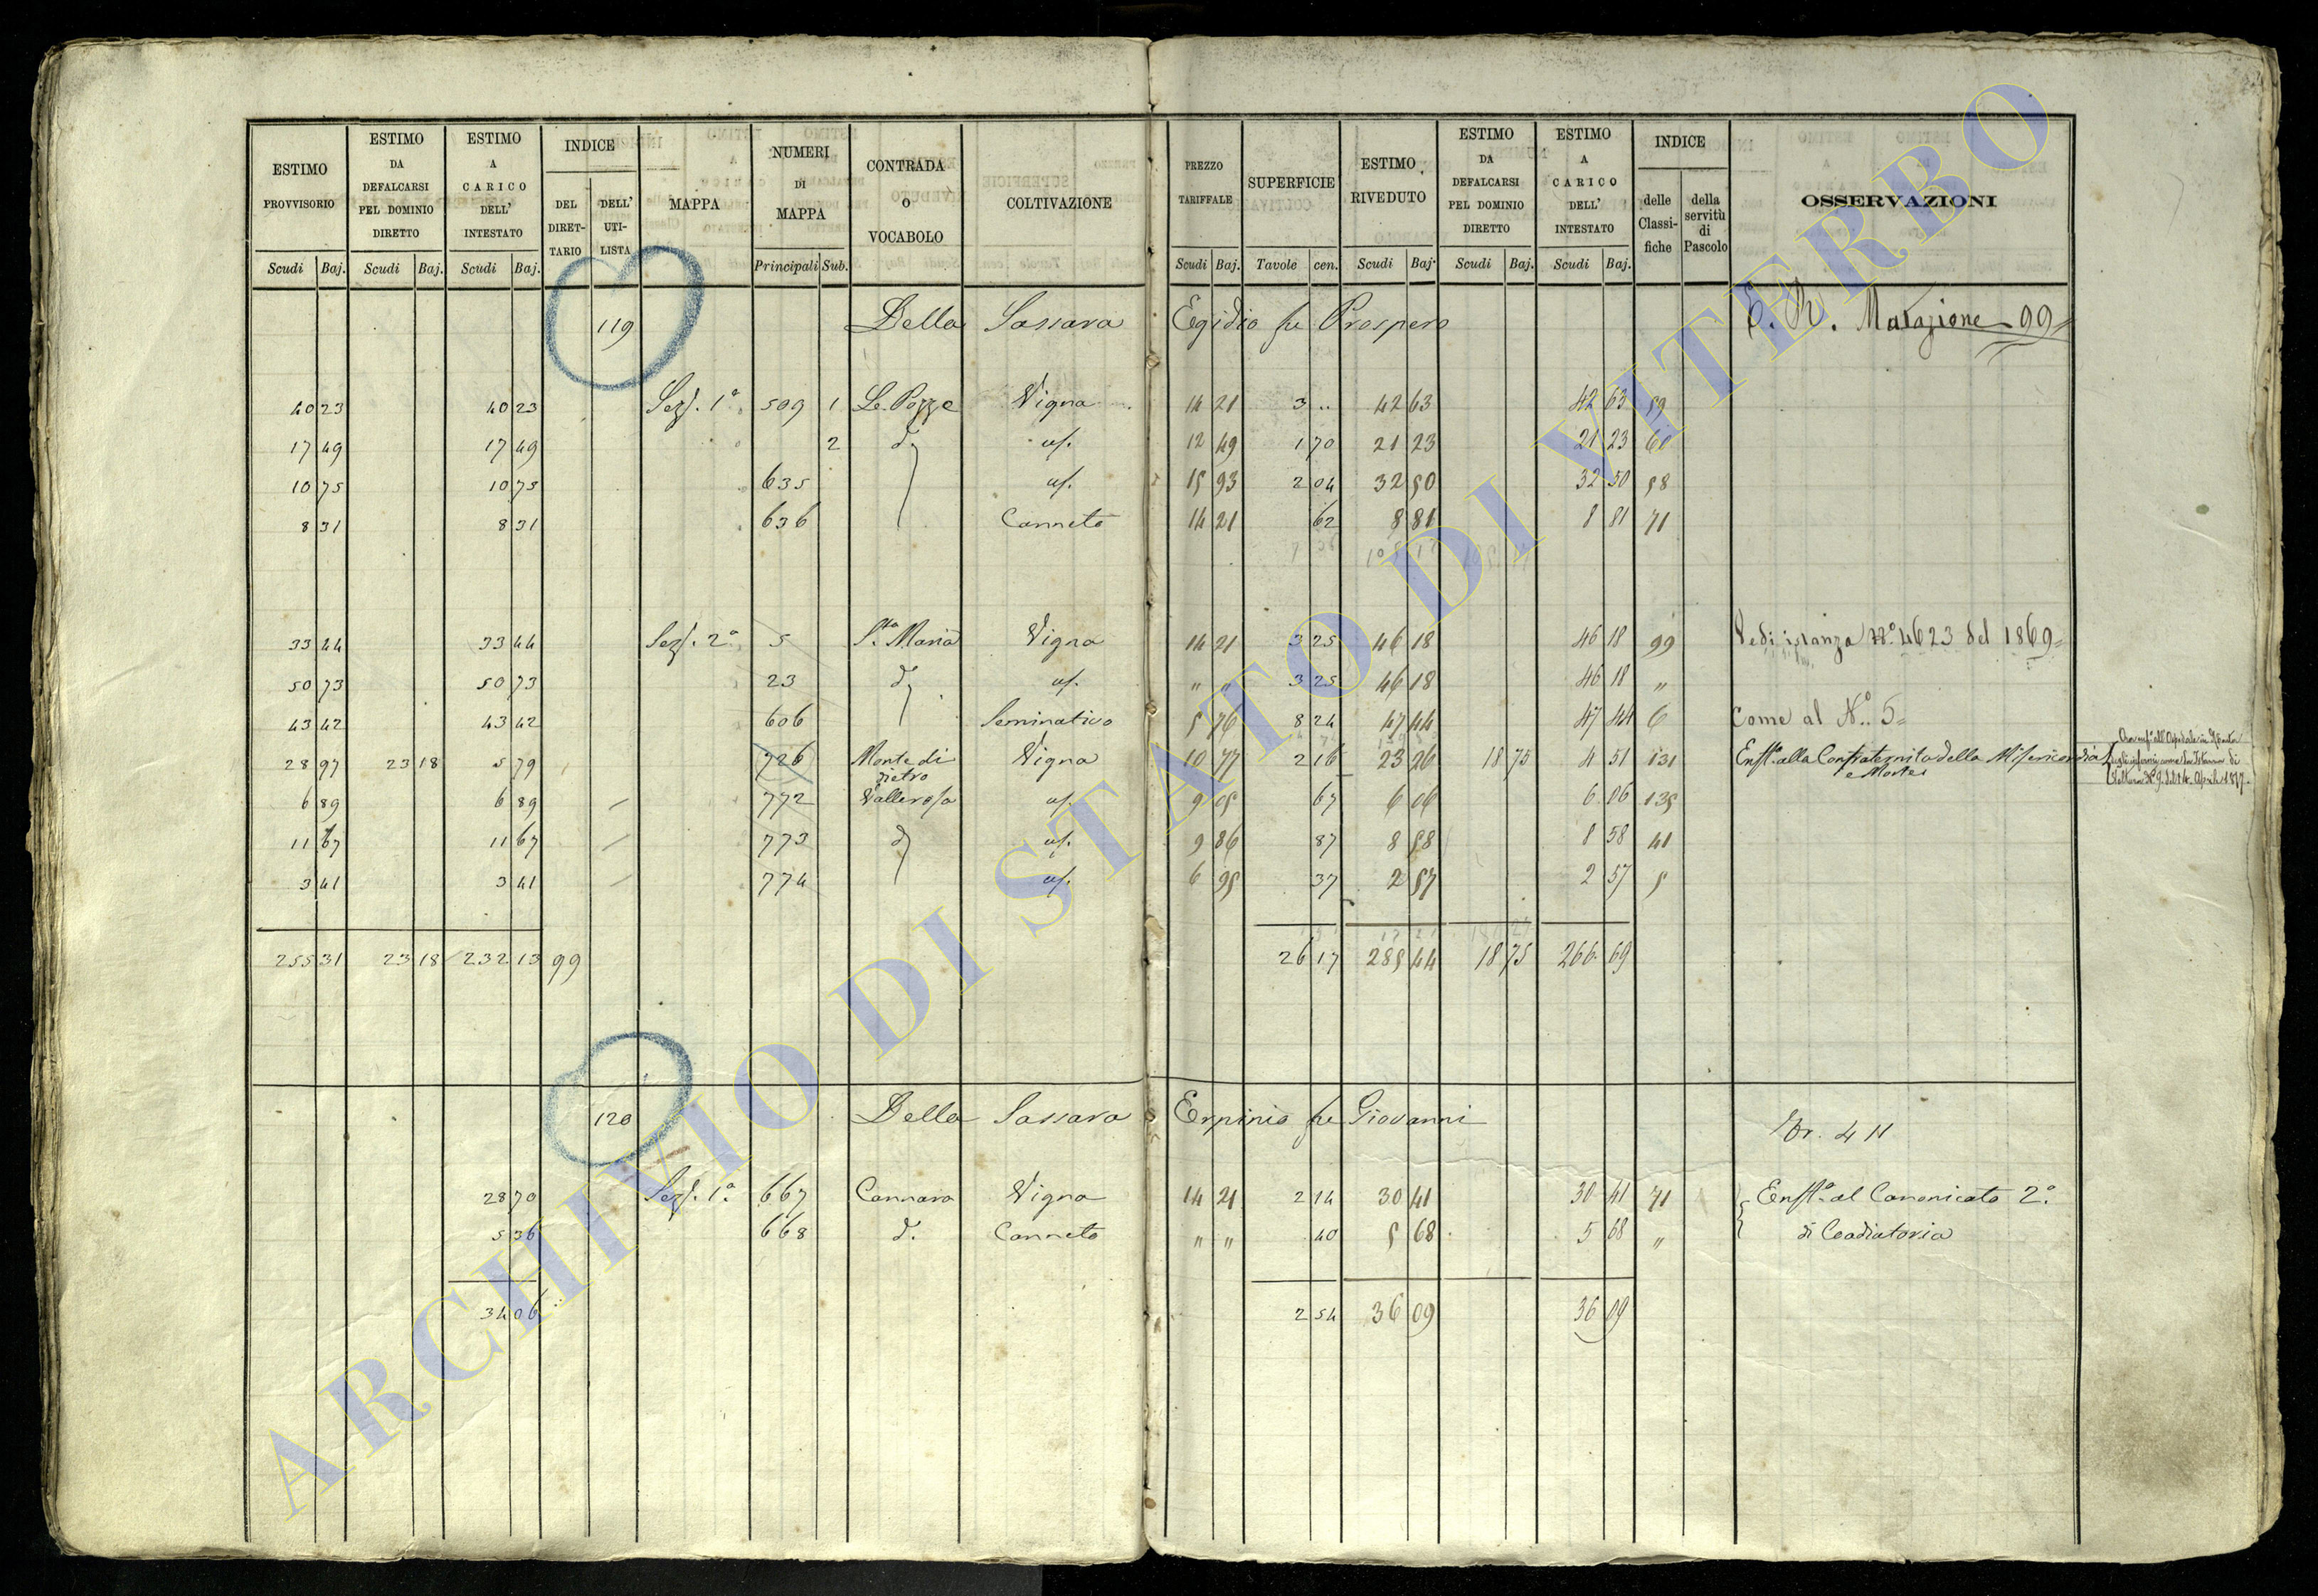 ESTIMO PROVVISORIO Scudi Baj. ESTIMO DA DEFALCARSI PEL DOMINIO DIRETTO Scudi Baj. ESTIMO A CARICO DELL' INTESTATO Scudi Baj. INDICE DEL DIRET-TARIO DELL' UTI-LISTA MAPPA NUMERI DI MAPPA Principali Sub. CONTRADA O VOCABOLO COLTIVAZIONE PREZZO TARIFFALE Scudi Baj. SUPERFICIE Tavole cen. ESTIMO RIVEDUTO Scudi Baj. ESTIMO DA DEFALCARSI PEL DOMINIO DIRETTO Scudi Baj. ESTIMO A CARICO DELL' INTESTATO Scudi Baj. INDICE delle Classi-fiche della servitù di Pascolo OSSERVAZIONI
119 Della Sassara Egidio fu Prospero 99
40 23 40 23 Sez. 1ª 509 1 Le Pozze Vigna 14 21 3 .. 42 63 42 63 59
17 49 17 49 2 d. us. 12 49 1 70 21 23 21 23 60
10 75 10 75 635 us. 15 93 2 04 32 50 32 50 58
8 31 8 31 636 Canneto 14 21 62 8 81 8 81 71
33 44 33 44 Sez. 2ª 5 S.ta Maria Vigna 14 21 3 25 46 18 46 18 99 Vedi istanza Nº 4623 del 1869=
50 73 50 73 23 d. us. " " 3 25 46 18 46 18 "
43 42 43 42 606 Seminativo 5 76 8 24 47 44 47 44 6 Come al Nº. 5=
28 97 23 18 5 79 726 Monte di pietro Vigna 10 77 2 16 23 26 18 75 4 51 131 Enf.ta alla Confraternita della Misericordia e Morte
6 89 6 89 772 Vallerosa us. 9 05 67 6 06 6 06 135
11 67 11 67 773 d. us. 9 86 87 8 58 8 58 41
3 41 3 41 774 us. 6 95 37 2 57 2 57 5
255 31 23 18 232 13 99 26 17 285 44 18 75 266 69
120 Della Sassara Erpinio fu Giovanni
28 70 Sez. 1ª 667 Cannara Vigna 14 21 2 14 30 41 30 41 71 Enft.ª al Canonicato 2.º
5 36 668 d. Canneto " " 40 5 68 5 68 " di Coadiutoria
34 06 2 54 36 09 36 09
ARCHIVIO DI STATO DI VITERBO